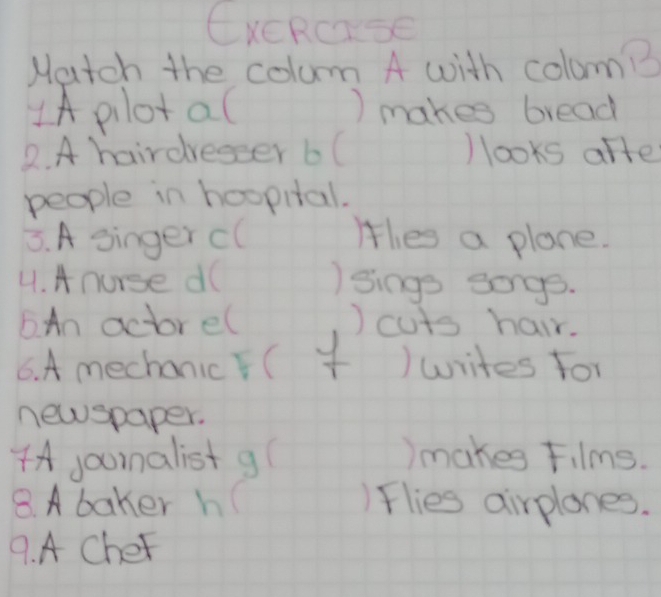 EXERCISE
Match the colum A with colom B
1 A pilot a( ) makes bread
2. A hairdresser b( ) looks afte
people in hoopital.
3. A singer c( ) flies a plane.
4. A nurse d( ) sings songs.
5. An actor e( ) cuts hair.
6. A mechanic F( 7 ) writes For
newspaper.
7 A journalist g( ) makes Films.
8. A baker h( ) Flies airplanes.
9. A Chef